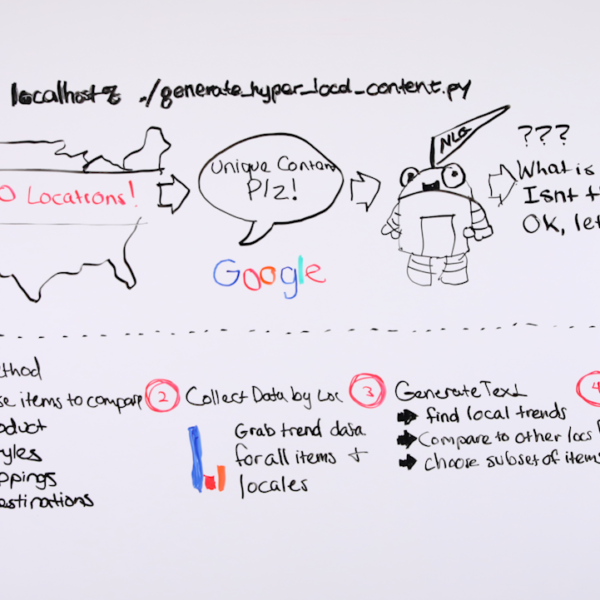 localhost% ./generate_hyper_local_content.py
0 Locations!
Unique Content
Plz!
NLG
???
What is
Isnt t
Ok, let
Google
ethod
se items to compare
oduct
yles
ppings
estinations
2 Collect Data by Loc
Grab trend data
for all items +
locales
3 Generate Text
find local trends
Compare to other locs
choose subset of items
4